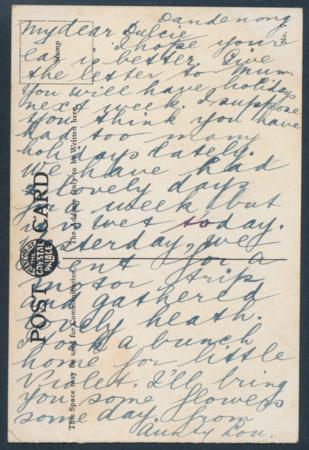 Dandenong
My dear Dulcie
I hope your
ear is better. Give
the letter to Mum.
You will have holidays
next week. I suppose
you think you have
had too many
holidays lately.
We have had
lovely days
for a week but
it is wet today.
Yesterday, we
went for a
motor trip
and gathered
lovely heath.
I took a bunch
home for little
Violet. I'll bring
you some flowers
some day. from
Aunty Lou.
Stamp
No.
POST CARD
CRYSTAL PALACE
This Space may be used for Communication.
The Address only to be Written here.